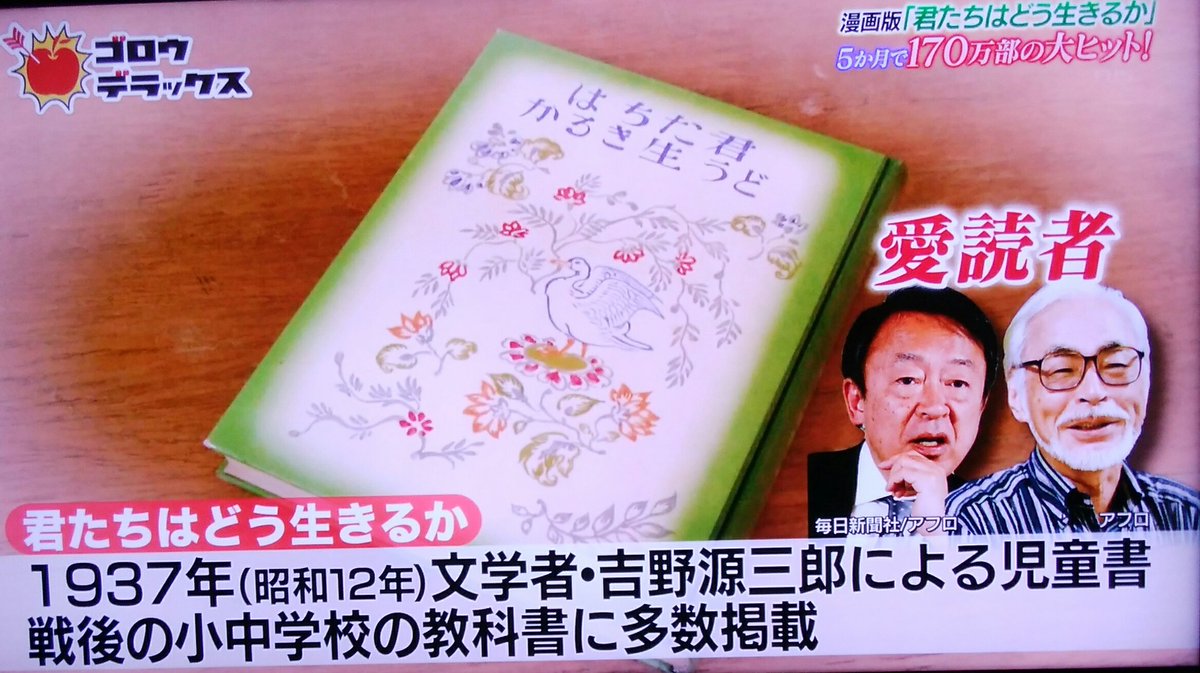 ゴロウ
デラックス
漫画版「君たちはどう生きるか」
5か月で170万部の大ヒット!
君たちは
どう生きるか
愛読者
毎日新聞社/アフロ
アフロ
君たちはどう生きるか
1937年(昭和12年)文学者・吉野源三郎による児童書
戦後の小中学校の教科書に多数掲載